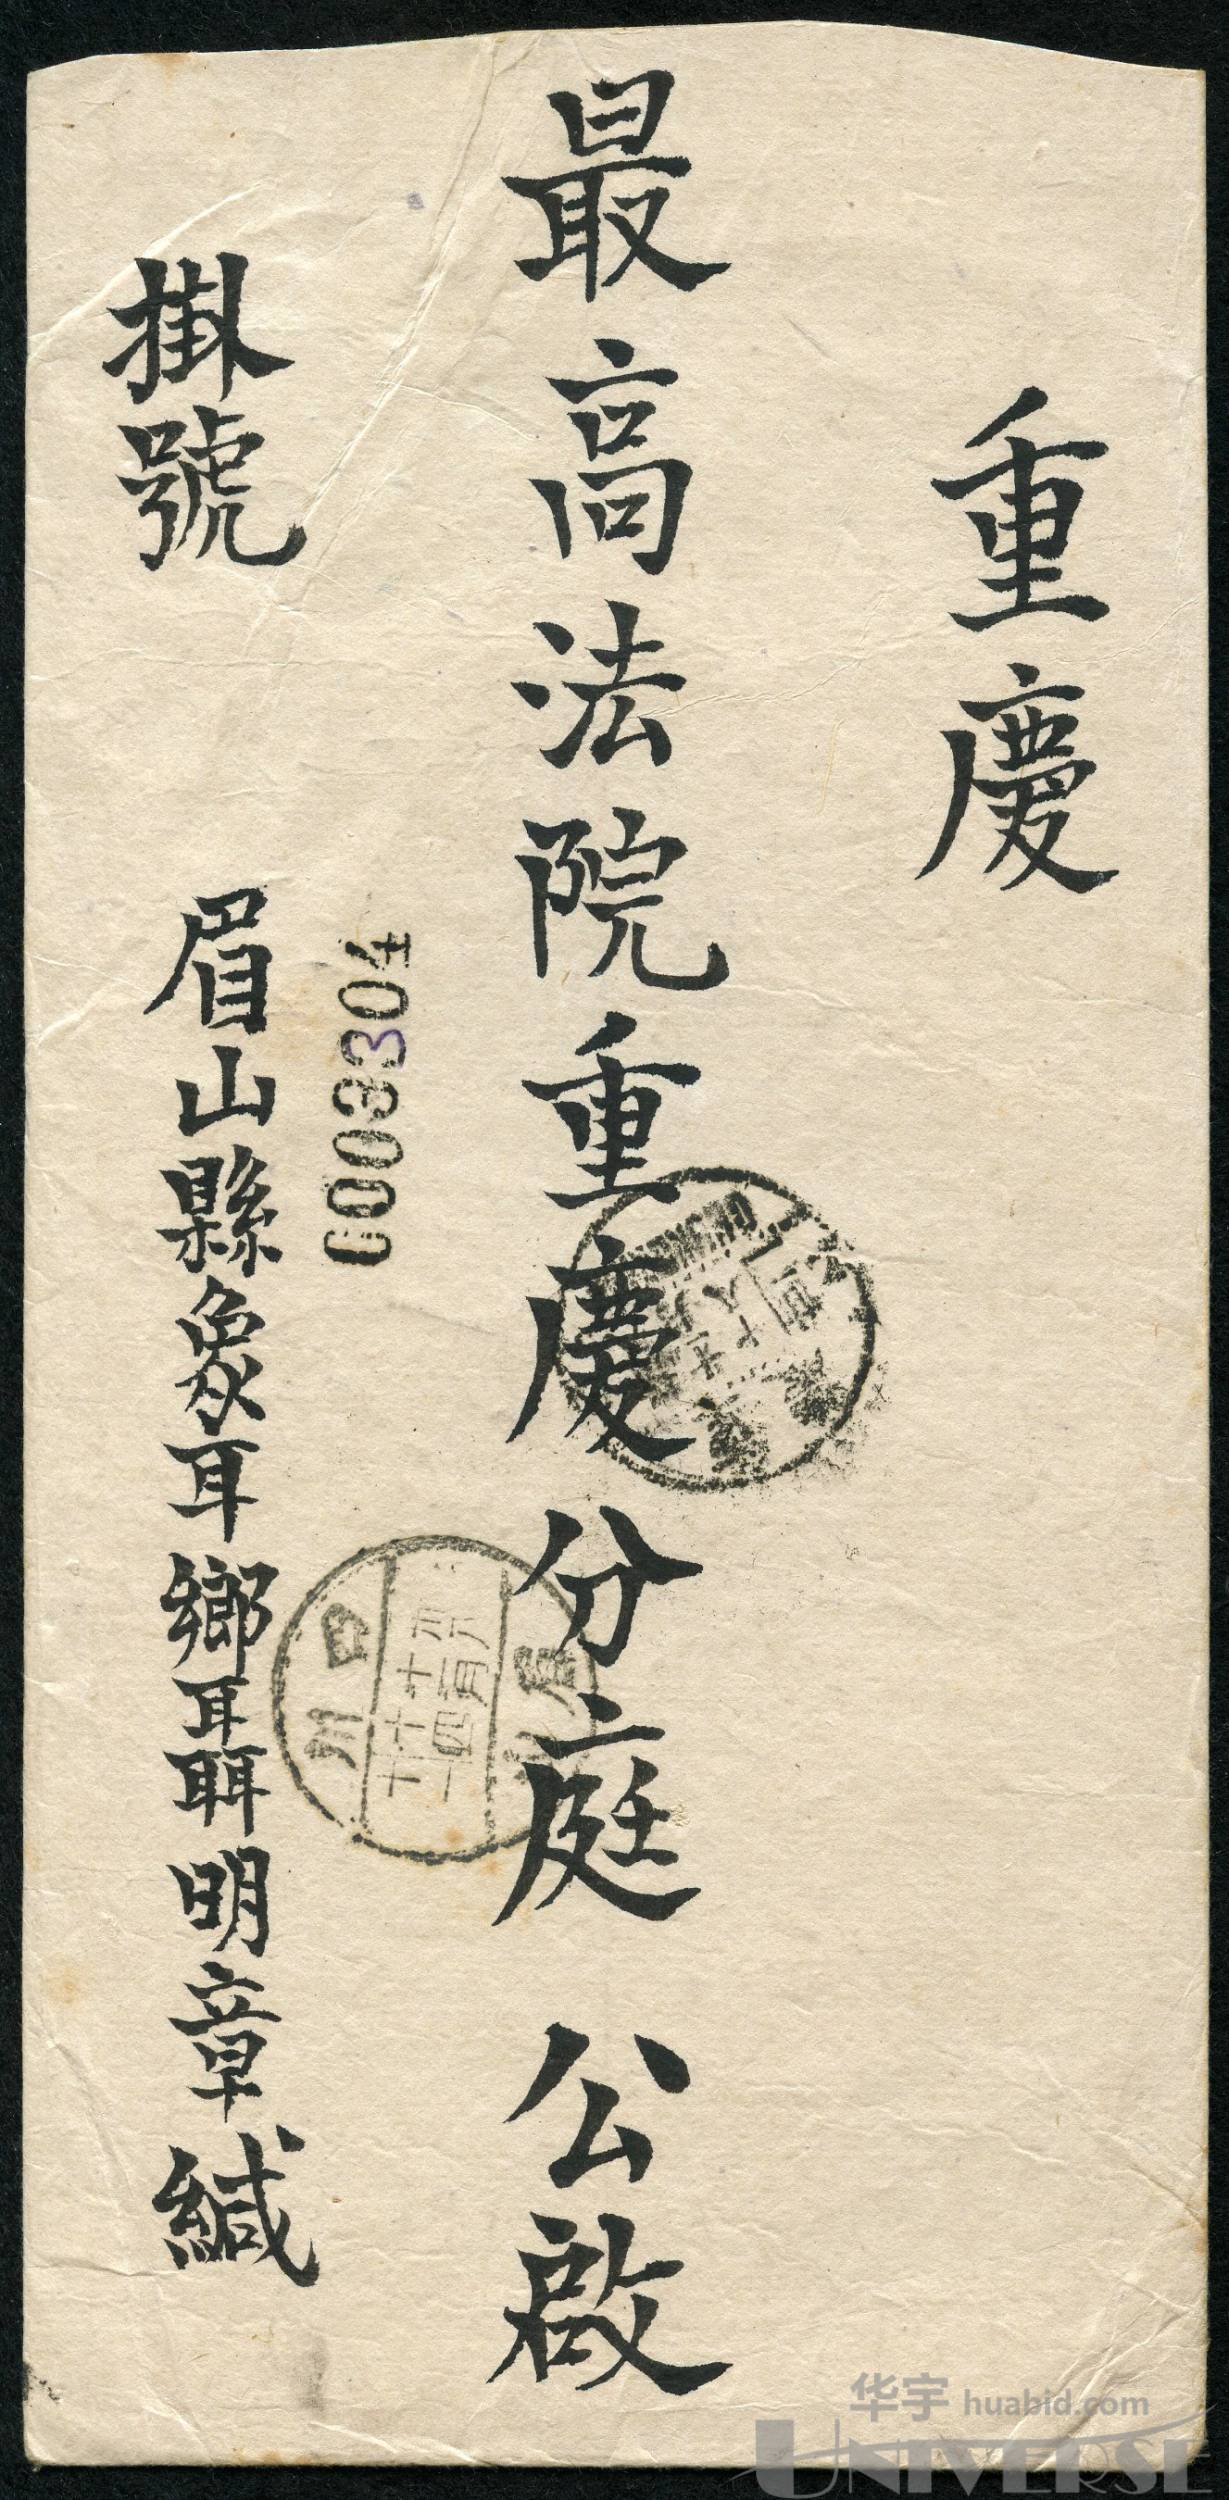 重慶
最高法院重慶分庭 公啟
掛號
眉山縣象耳鄉聶明章緘
0003304
四川
华宇 huabid.com
UNIVERSE